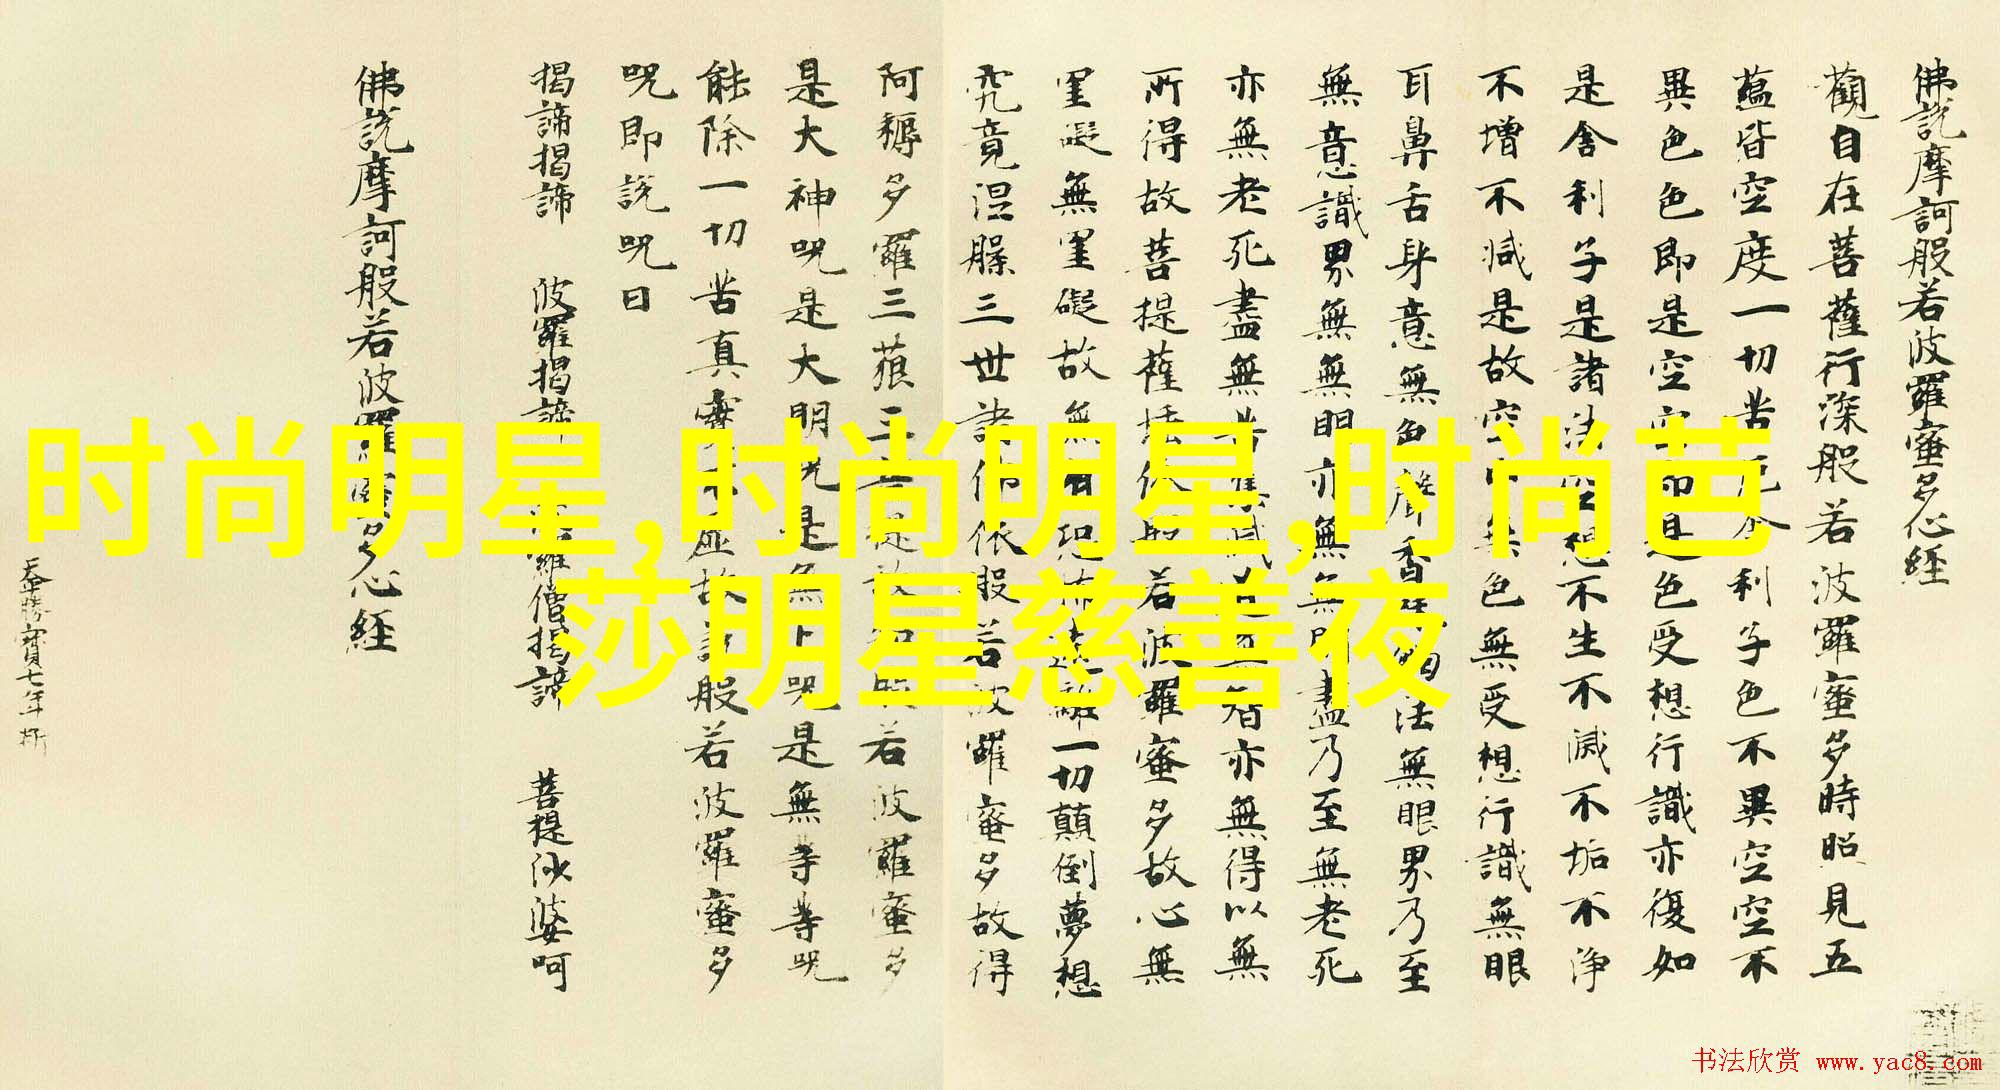 佛說摩訶般若波羅蜜多心経
觀自在菩薩行深般若波羅蜜多時照見五
蘊皆空度一切苦厄舍利子色不異空空不
異色色即是空空即是色受想行識亦復如
是舍利子是諸法空想不生不滅不垢不淨
不增不減是故空中無色無受想行識無眼
耳鼻舌身意無色聲香味觸法無眼界乃至
無意識界無無明亦無無明盡乃至無老死
亦無老死盡無苦集滅道無智亦無得以無
所得故菩提薩埵依般若波羅蜜多故心無
罣礙無罣礙故無有恐怖遠離一切顛倒夢想
究竟涅槃三世諸佛依般若波羅蜜多故得
阿耨多羅三藐三菩提故知般若波羅蜜多
是大神呪是大明呪是無上呪是無等等呪
能除一切苦真實不虛故說般若波羅蜜多
呪即說呪曰
揭諦揭諦 波羅揭諦 波羅僧揭諦 菩提沙婆呵
佛說摩訶般若波羅蜜多心経
时尚明星,时尚明星,时尚芭
莎明星慈善夜
书法欣赏 www.yac8.com